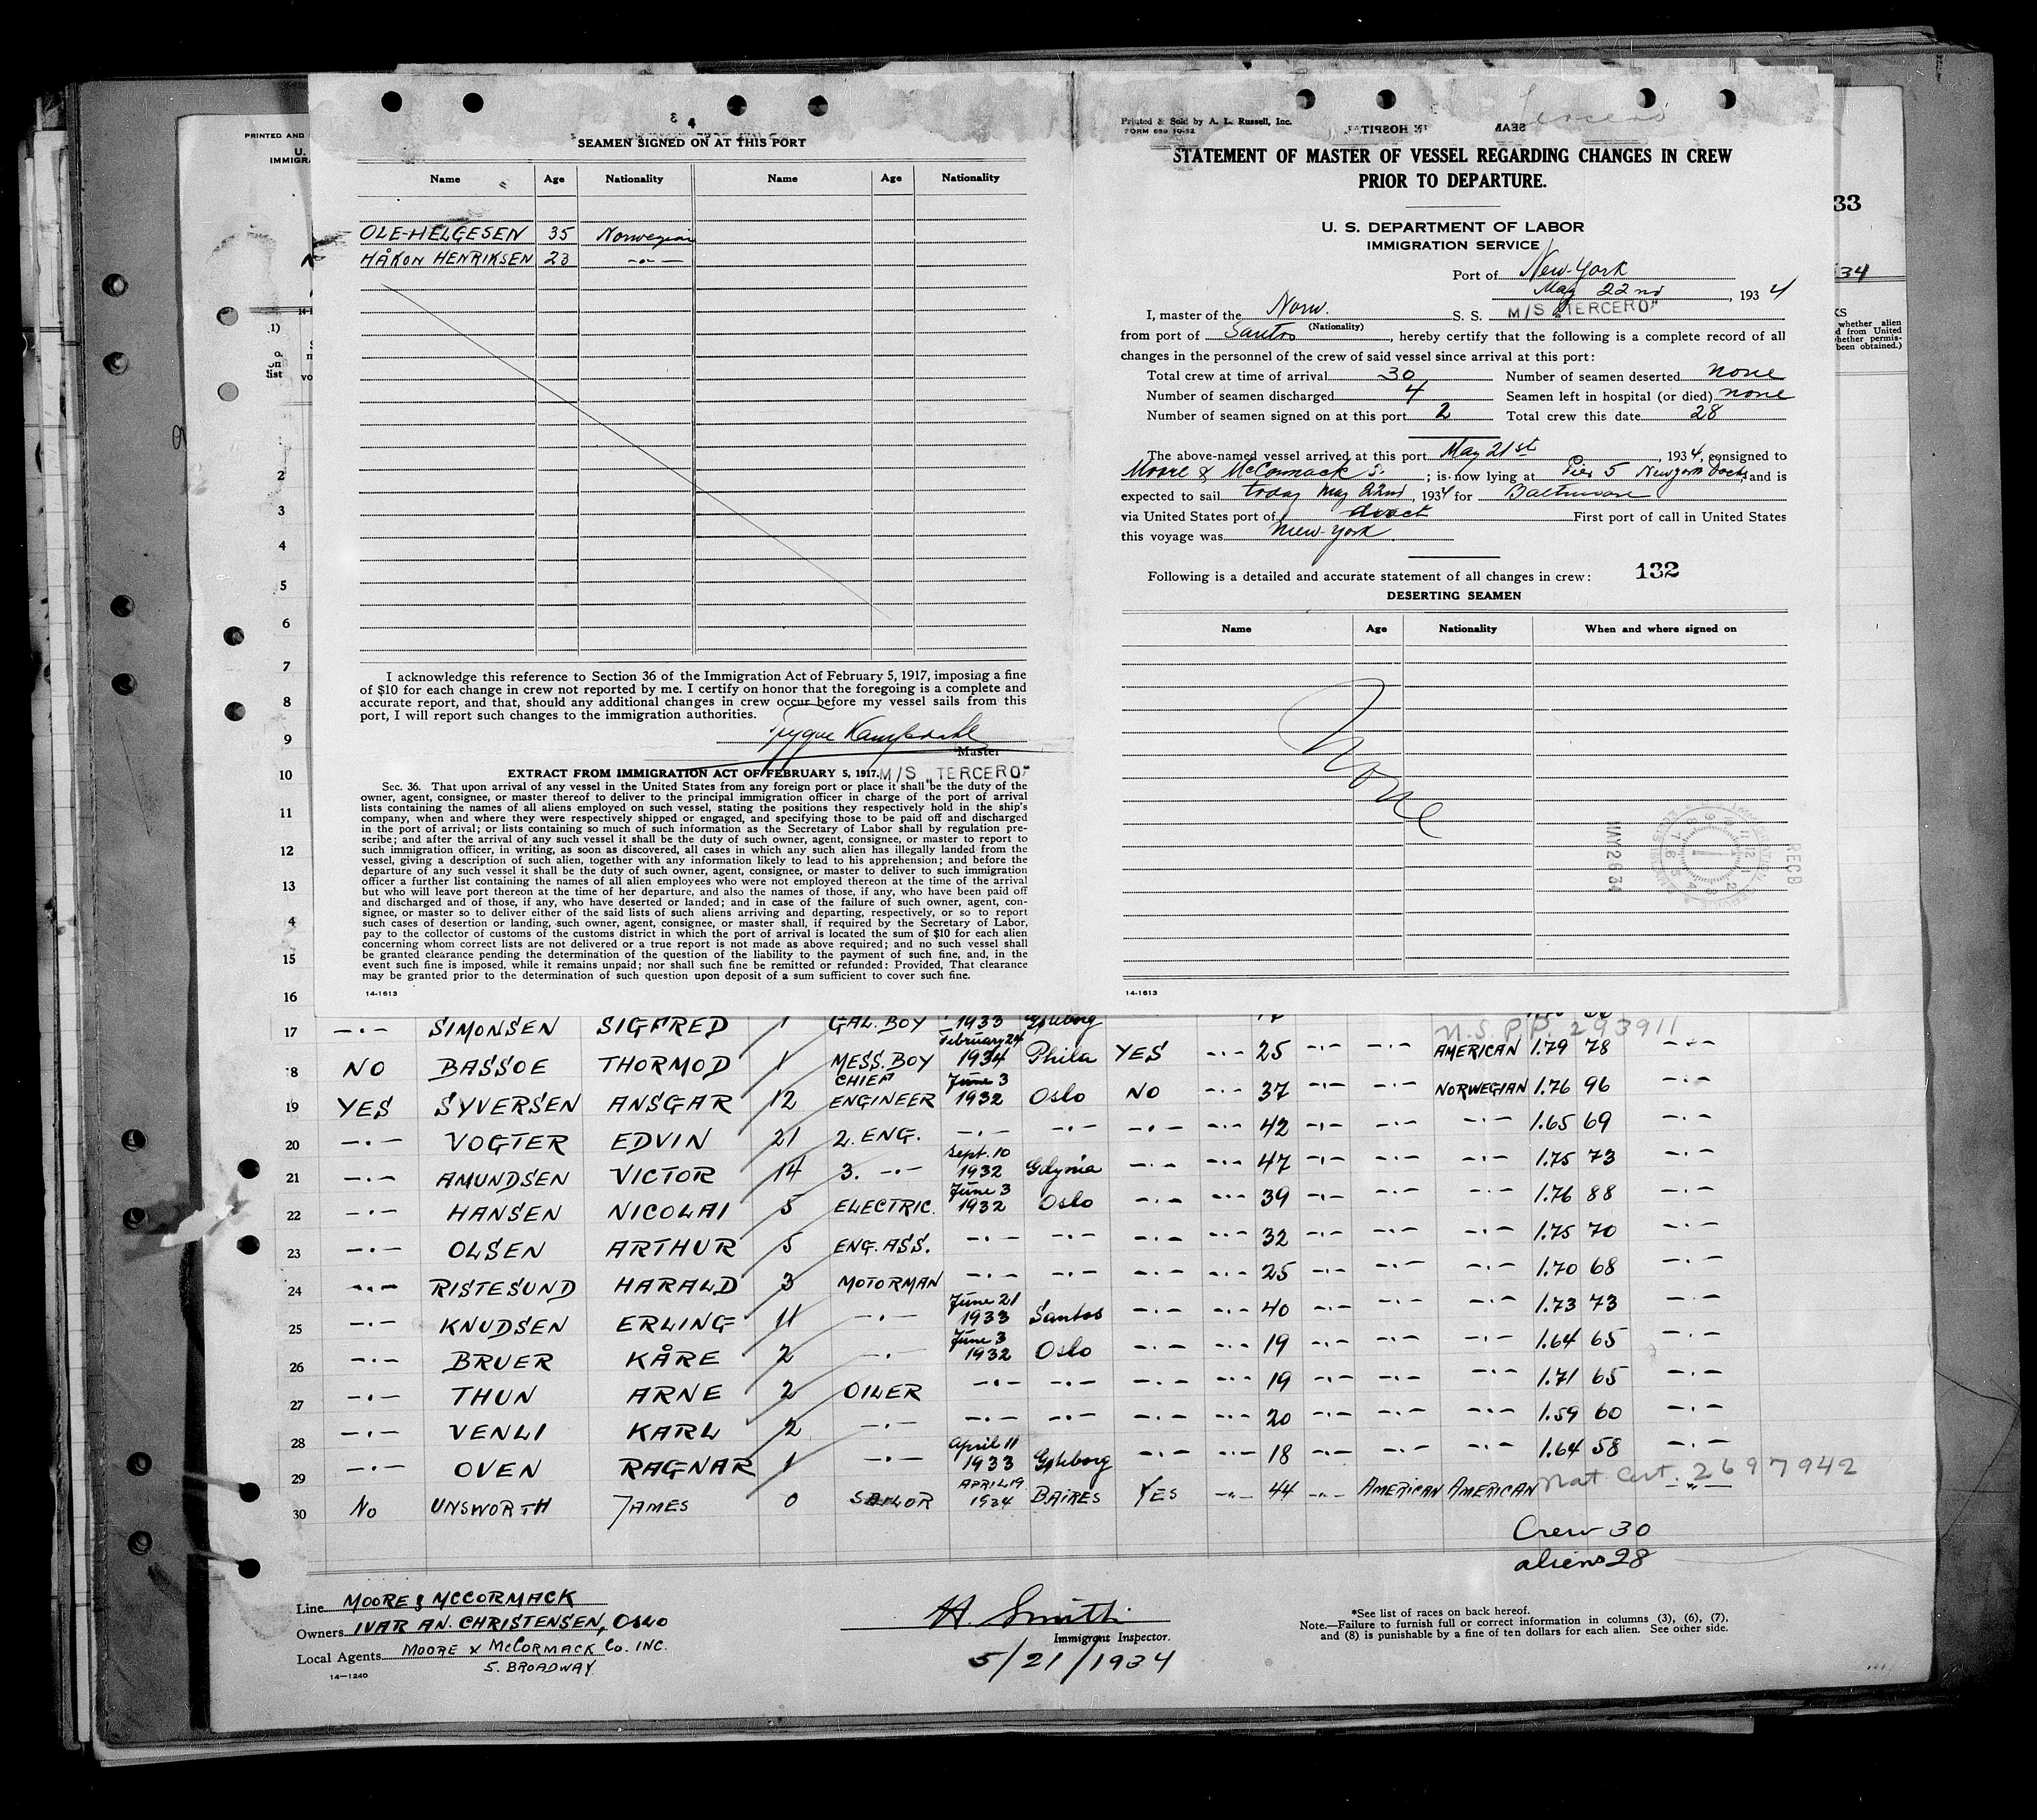 SEAMEN SIGNED ON AT THIS PORT
Name Age Nationality Name Age Nationality
OLE-HELGESEN 35 Norwegian
HÅKON HENRIKSEN 23 -"-
I acknowledge this reference to Section 36 of the Immigration Act of February 5, 1917, imposing a fine
of $10 for each change in crew not reported by me. I certify on honor that the foregoing is a complete and
accurate report, and that, should any additional changes in crew occur before my vessel sails from this
port, I will report such changes to the immigration authorities.
Master
EXTRACT FROM IMMIGRATION ACT OF FEBRUARY 5, 1917. M/S „TERCERO"
Sec. 36. That upon arrival of any vessel in the United States from any foreign port or place it shall be the duty of the
owner, agent, consignee, or master thereof to deliver to the principal immigration officer in charge of the port of arrival
lists containing the names of all aliens employed on such vessel, stating the positions they respectively hold in the ship's
company, when and where they were respectively shipped or engaged, and specifying those to be paid off and discharged
in the port of arrival; or lists containing so much of such information as the Secretary of Labor shall by regulation pre-
scribe; and after the arrival of any such vessel it shall be the duty of such owner, agent, consignee, or master to report to
such immigration officer, in writing, as soon as discovered, all cases in which any such alien has illegally landed from the
vessel, giving a description of such alien, together with any information likely to lead to his apprehension; and before the
departure of any such vessel it shall be the duty of such owner, agent, consignee, or master to deliver to such immigration
officer a further list containing the names of all alien employees who were not employed thereon at the time of the arrival
but who will leave port thereon at the time of her departure, and also the names of those, if any, who have been paid off
and discharged and of those, if any, who have deserted or landed; and in case of the failure of such owner, agent, con-
signee, or master so to deliver either of the said lists of such aliens arriving and departing, respectively, or so to report
such cases of desertion or landing, such owner, agent, consignee, or master shall, if required by the Secretary of Labor,
pay to the collector of customs of the customs district in which the port of arrival is located the sum of $10 for each alien
concerning whom correct lists are not delivered or a true report is not made as above required; and no such vessel shall
be granted clearance pending the determination of the question of the liability to the payment of such fine, and, in the
event such fine is imposed, while it remains unpaid; nor shall such fine be remitted or refunded: Provided, That clearance
may be granted prior to the determination of such question upon deposit of a sum sufficient to cover such fine.
14-1613
Printed & Sold by A. L. Russell, Inc.
FORM 689 10-32
STATEMENT OF MASTER OF VESSEL REGARDING CHANGES IN CREW
PRIOR TO DEPARTURE.
U. S. DEPARTMENT OF LABOR
IMMIGRATION SERVICE
Port of New-York
May 22nd, 1934
I, master of the Norw. S. S. M/S „TERCERO"
(Nationality)
from port of Santos, hereby certify that the following is a complete record of all
changes in the personnel of the crew of said vessel since arrival at this port:
Total crew at time of arrival 30 Number of seamen deserted none
Number of seamen discharged 4 Seamen left in hospital (or died) none
Number of seamen signed on at this port 2 Total crew this date 28
The above-named vessel arrived at this port May 21st, 1934, consigned to
Moore & McCormack; is now lying at Pier 5 New york Docks, and is
expected to sail today May 22nd, 1934 for Baltimore
via United States port of direct First port of call in United States
this voyage was New-York
Following is a detailed and accurate statement of all changes in crew: 132
DESERTING SEAMEN
Name Age Nationality When and where signed on
None
RECD
MAY 26 34
14-1613
17 -"- SIMONSEN SIGFRED 1 GAL. BOY 1933 Gøteborg 17
U.S.P.P. 293911
18 NO BASSOE THORMOD 1 MESS. BOY February 24 1934 Phila YES -"- 25 -"- -"- AMERICAN 1.79 78 -"-
19 YES SYVERSEN ANSGAR 12 CHIEF ENGINEER June 3 1932 Oslo NO -"- 37 -"- -"- NORWEGIAN 1.76 96 -"-
20 -"- VOGTER EDVIN 21 2. ENG. -"- -"- -"- -"- 42 -"- -"- -"- 1.65 69 -"-
21 -"- AMUNDSEN VICTOR 14 3. -"- Sept. 10 1932 Gdynia -"- -"- 47 -"- -"- -"- 1.75 73 -"-
22 -"- HANSEN NICOLAI 5 ELECTRIC. June 3 1932 Oslo -"- -"- 39 -"- -"- -"- 1.76 88 -"-
23 -"- OLSEN ARTHUR 5 ENG. ASS. -"- -"- -"- -"- 32 -"- -"- -"- 1.75 70 -"-
24 -"- RISTESUND HARALD 3 MOTORMAN -"- -"- -"- -"- 25 -"- -"- -"- 1.70 68 -"-
25 -"- KNUDSEN ERLING 11 -"- June 21 1933 Santos -"- -"- 40 -"- -"- -"- 1.73 73 -"-
26 -"- BRUER KÅRE 2 -"- June 3 1932 Oslo -"- -"- 19 -"- -"- -"- 1.64 65 -"-
27 -"- THUN ARNE 2 OILER -"- -"- -"- -"- 19 -"- -"- -"- 1.71 65 -"-
28 -"- VENLI KARL 2 -"- -"- -"- -"- -"- 20 -"- -"- -"- 1.59 60 -"-
29 -"- OVEN RAGNAR 1 -"- April 11 1933 Gøteborg -"- -"- 18 -"- -"- -"- 1.64 58 -"-
30 No UNSWORTH JAMES 0 SAILOR APRIL 19 1934 BAIRES YES -"- 44 -"- AMERICAN AMERICAN Nat Cert. 2697942 -"-
Crew 30
aliens 28
Line MOORE & MCCORMACK
Owners IVAR AN. CHRISTENSEN, OSLO
Local Agents MOORE & MCCORMACK CO. INC.
5. BROADWAY
14-1240
H. Smith
Immigrant Inspector.
5/21/1934
*See list of races on back hereof.
Note.—Failure to furnish full or correct information in columns (3), (6), (7),
and (8) is punishable by a fine of ten dollars for each alien. See other side.